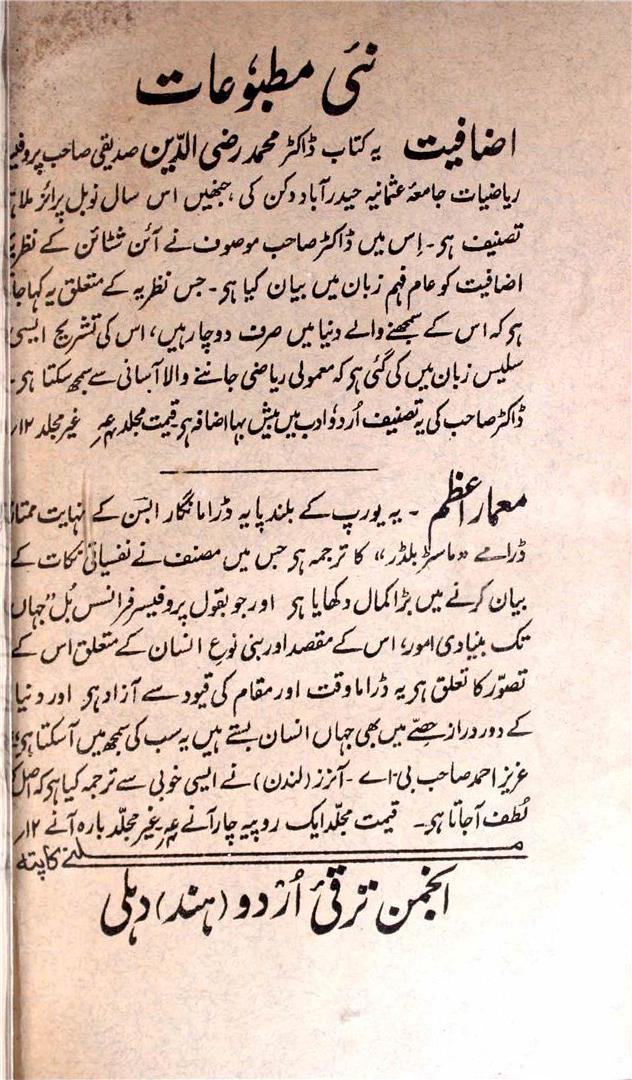 نئی مطبوعات
اضافیت یہ کتاب ڈاکٹر محمد رضی الدّین صدیقی صاحب پروفیسر
ریاضیات جامعۂ عثمانیہ حیدرآباد دکن کی، جنھیں اس سال نوبل پرائز ملا ہے
تصنیف ہو۔ اِس میں ڈاکٹر صاحب موصوف نے آئن شٹائن کے نظریہ
اضافیت کو عام فہم زبان میں بیان کیا ہو۔ جس نظریہ کے متعلق یہ کہا جاتا
ہو کہ اس کے سمجھنے والے دنیا میں صرف دو چار ہیں، اس کی تشریح ایسی
سلیس زبان میں کی گئی ہو کہ معمولی ریاضی جاننے والا آسانی سے سمجھ سکتا ہو۔
ڈاکٹر صاحب کی یہ تصنیف اُردؤ ادب میں بیش بہا اضافہ ہو قیمت مجلد غیر مجلد ۱۲؍
معمار اعظم ۔ یہ یورپ کے بلند پایہ ڈراما نگار ابسن کے نہایت ممتاز
ڈرامے "ماسٹر بلڈر" کا ترجمہ ہو جس میں مصنف نے نفسیاتی نکات کے
بیان کرنے میں بڑا کمال دکھایا ہو اور جو بقول پروفیسر فرانسس بُل "جہاں
تک بنیادی امور، اس کے مقصد اور بنی نوعِ انسان کے متعلق اس کے
تصوّر کا تعلق ہو یہ ڈراما وقت اور مقام کی قیود سے آزاد ہو اور دنیا
کے دور دراز حصّے میں بھی جہاں انسان بستے ہیں یہ سب کی سمجھ میں آسکتا ہو"
عزیز احمد صاحب بی۔اے۔ آنرز (لندن) نے ایسی خوبی سے ترجمہ کیا ہو کہ اصل کا
لُطف آجاتا ہو۔ قیمت مجلّد ایک روپیہ چار آنے غیر مجلّد بارہ آنے ۱۲؍
ملنے کا پتہ
انجمن ترقیٔ اُردو (ہند) دہلی